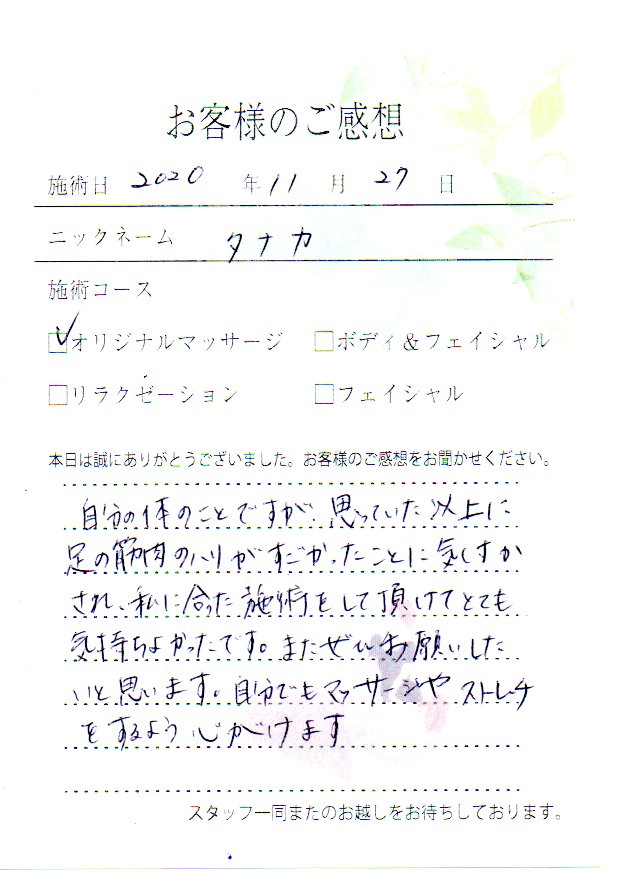 お客様のご感想
施術日 2020 年 11 月 27 日
ニックネーム タナカ
施術コース
☑オリジナルマッサージ □ボディ＆フェイシャル
□リラクゼーション □フェイシャル
本日は誠にありがとうございました。お客様のご感想をお聞かせください。
自分の体のことですが、思っていた以上に
足の筋肉のハリがすごかったことに気づか
され、私に合った施術をして頂けてとても
気持ちよかったです。またぜひお願いした
いと思います。自分でもマッサージや ストレッチ
をするよう心がけます
スタッフ一同またのお越しをお待ちしております。